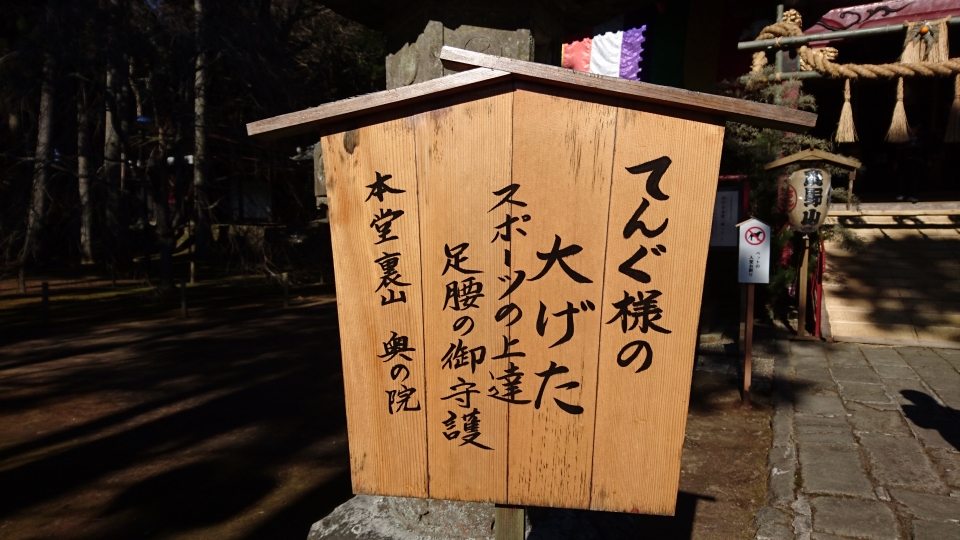 てんぐ様の
大げた
スポーツの上達
足腰の御守護
本堂裏山 奥の院